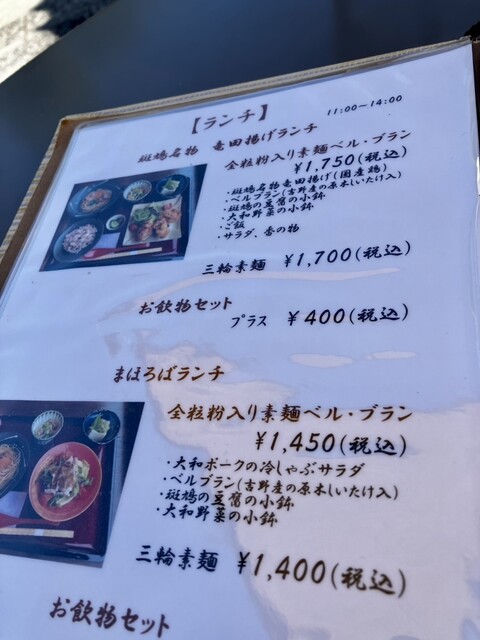 【ランチ】
11:00~14:00
斑鳩名物 竜田揚げランチ
全粒粉入り素麺ベル・ブラン
¥1,750(税込)
・斑鳩名物竜田揚げ(国産鶏)
・ベルブラン(吉野産の原木しいたけ入)
・斑鳩の豆腐の小鉢
・大和野菜の小鉢
・ご飯
・サラダ、香の物
三輪素麺 ¥1,700(税込)
お飲物セット
プラス ¥400(税込)
まほろばランチ
全粒粉入り素麺ベル・ブラン
¥1,450(税込)
・大和ポークの冷しゃぶサラダ
・ベルブラン(吉野産の原木しいたけ入)
・斑鳩の豆腐の小鉢
・大和野菜の小鉢
三輪素麺 ¥1,400(税込)
お飲物セット